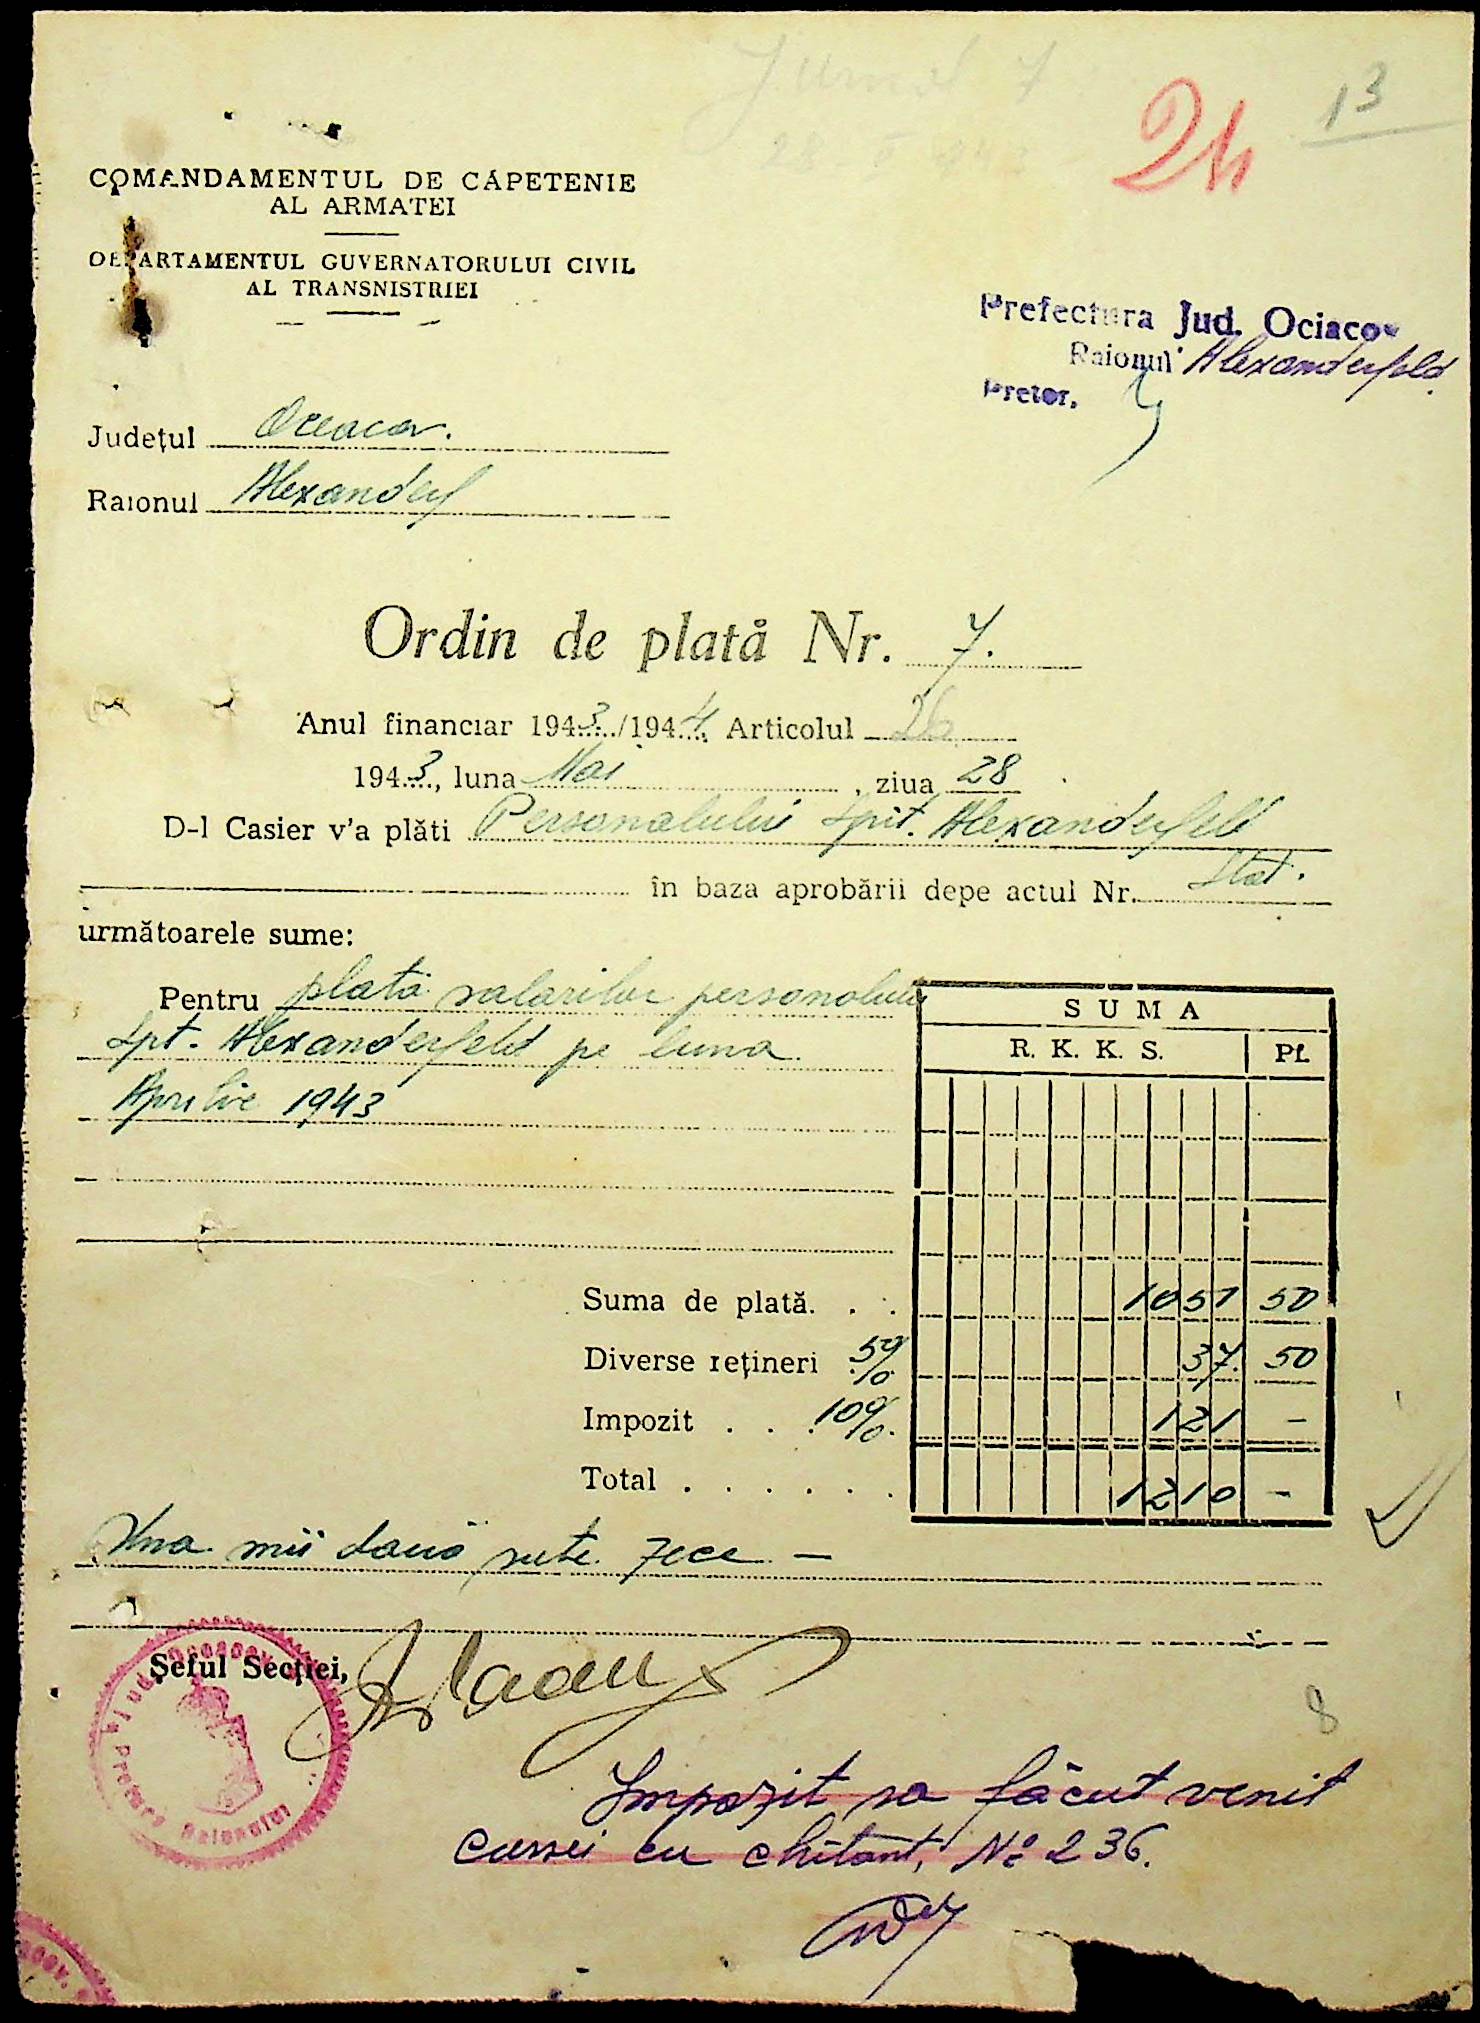 Jurnal 7
28 V 943
24
13
COMANDAMENTUL DE CAPETENIE
AL ARMATEI
DEPARTAMENTUL GUVERNATORULUI CIVIL
AL TRANSNISTRIEI
Prefectura Jud. Ociacov
Raionul Alexanderfeld.
Pretor,
Județul Oceacov.
Raionul Alexanderf
Ordin de plată Nr. 7.
Anul financiar 1943/1944 Articolul 26
1943, luna Mai, ziua 28
D-l Casier v'a plăti Personalului Spit. Alexanderfeld
în baza aprobării depe actul Nr. Stat.
următoarele sume:
Pentru plata salariilor personalului
Spt. Alexanderfeld pe luna
Aprilie 1943
SUMA
R. K. K. S. Pf.
Suma de plată. . . 1051 50
Diverse rețineri 5% 37. 50
Impozit . . . 10%. 121 -
Total . . . . . . 1210 -
Una mii două sute zece -
Șeful Secției,
Jud. Oceacov
Pretura Raionului
8
Impozit sa făcut venit
cassei cu chitant, No 236.